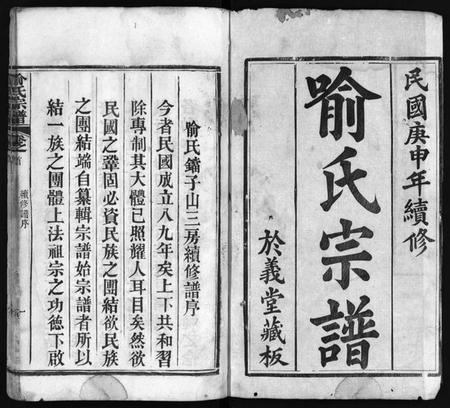 民國庚申年續修
喻氏宗譜
於義堂藏板
喻氏鑷子山三房續修譜序
今者民國成立八九年矣上下共和習
除專制其大體已照耀人耳目矣然欲
民國之鞏固必資民族之團結欲民族
之團結端自纂輯宗譜始宗譜者所以
結一族之團體上法祖宗之功德下啟
喻氏宗譜
卷首
續修譜序